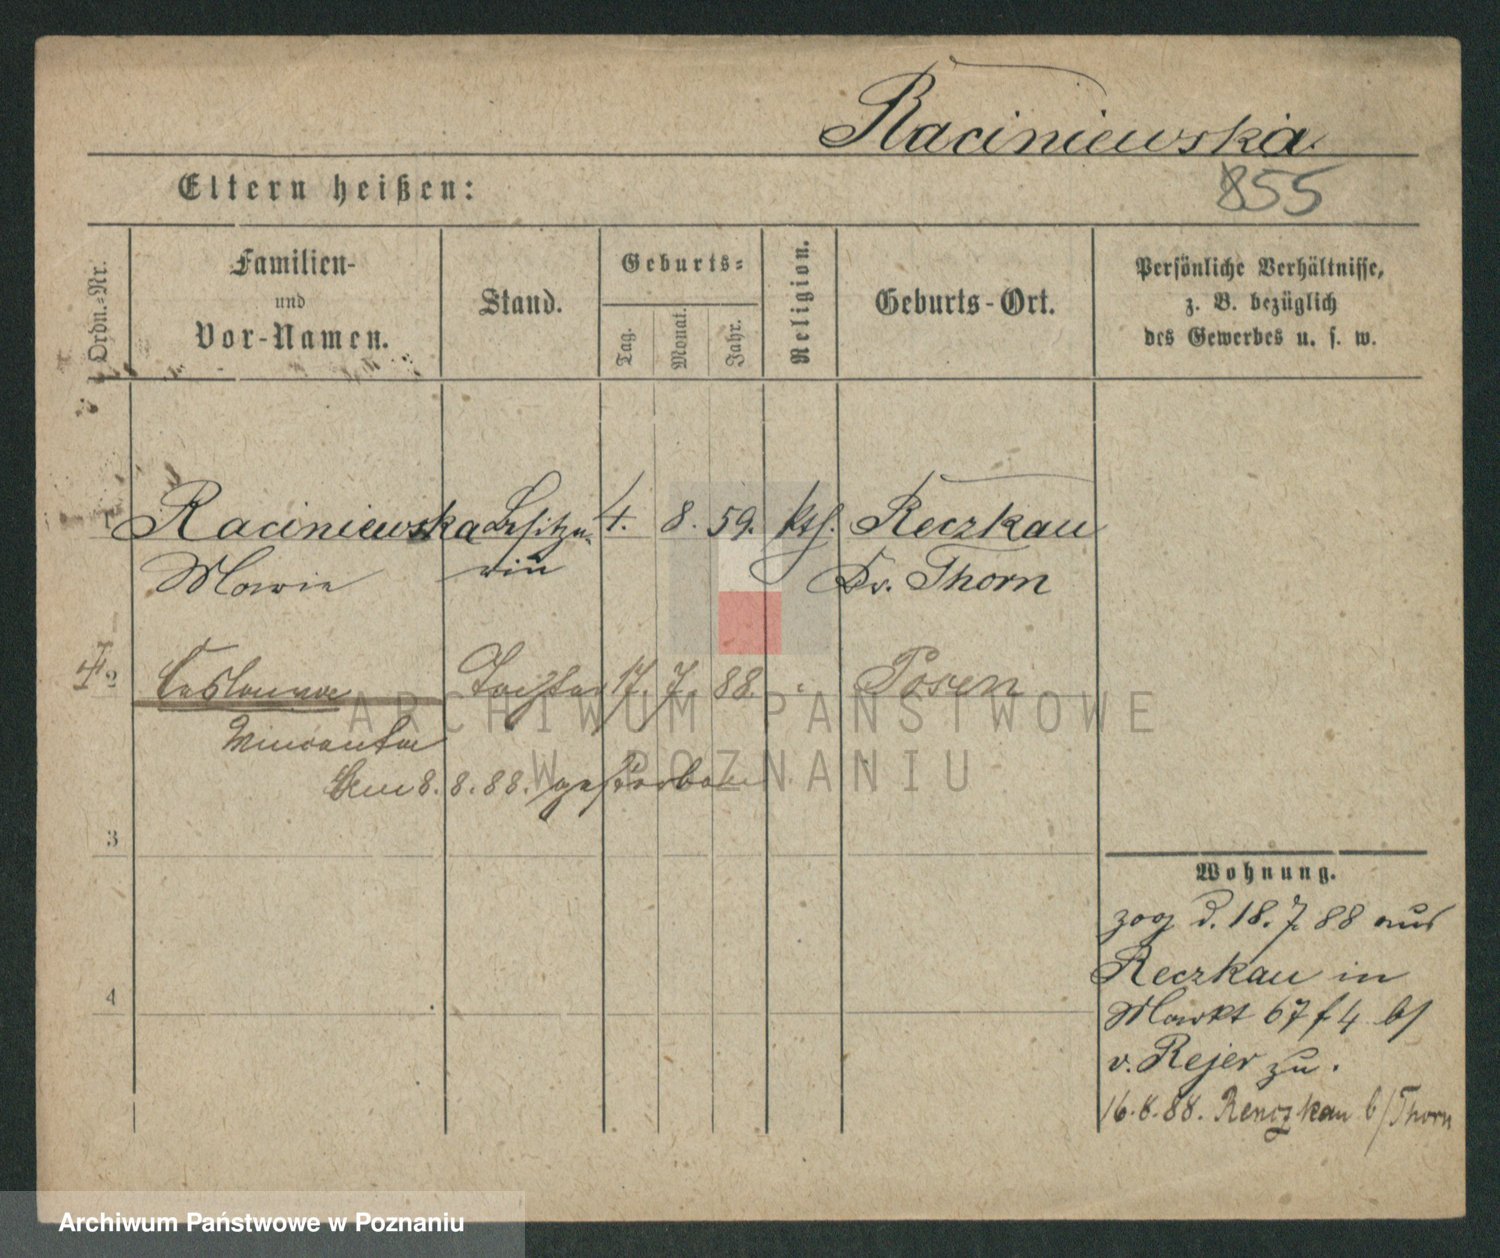 Raciniewska
855
Eltern heißen:
Ordn.-Nr.
Familien-
und
Vor-Namen.
Stand.
Geburts-
Tag.
Monat.
Jahr.
Religion.
Geburts-Ort.
Persönliche Verhältnisse,
z. B. bezüglich
des Gewerbes u. s. w.
1 Raciniewska Besitze- 4. 8. 59. kth. Reczkau
Marie rin Kr. Thorn
2 Tochter 17. 7. 88. Posen
am 8. 8. 88. gestorben
3
4
Wohnung.
zog d. 18. 7. 88 aus
Reczkau in
Markt 67 f 4 b/
v. Rejer zu.
16. 8. 88. Renczkau b/Thorn
ARCHIWUM PAŃSTWOWE
W POZNANIU
Archiwum Państwowe w Poznaniu